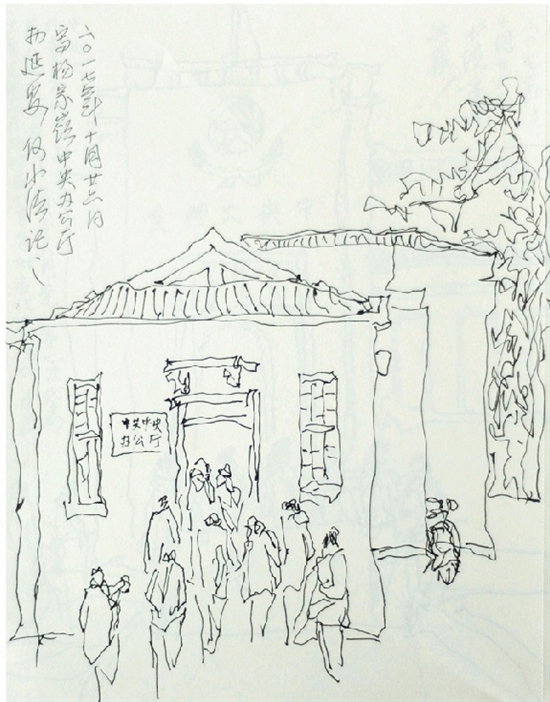 二〇一七年十月廿六日
写杨家岭中央办公厅
于延安 记
中共中央
办公厅